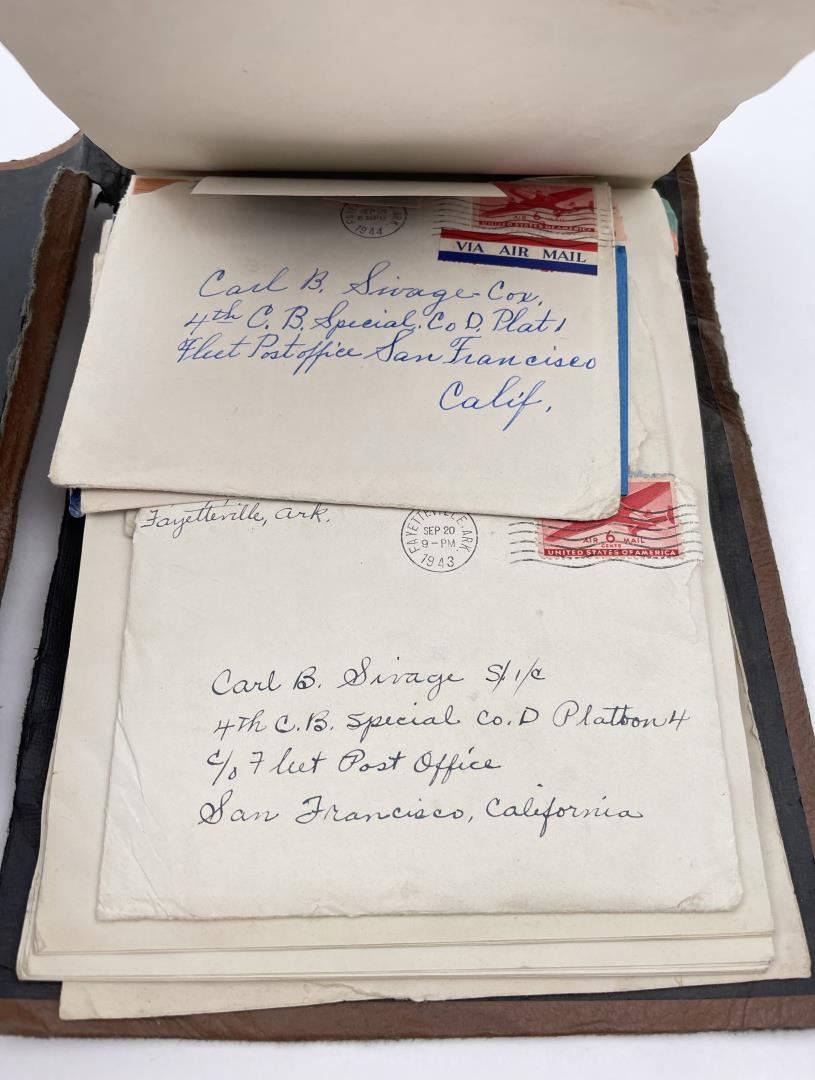 SEP
1944
AIR 6 MAIL
UNITED STATES OF AMERICA
VIA AIR MAIL
Carl B. Sivage-Cox,
4th C. B. Special. Co D. Plat 1
Fleet Postoffice San Francisco
Calif.
Fayetteville, Ark.
FAYETTEVILLE, ARK.
SEP 20
9-PM
1943
AIR 6 MAIL
CENTS
UNITED STATES OF AMERICA
Carl B. Sivage S/1/c
4th C.B. Special Co. D Platoon 4
c/o Fleet Post Office
San Francisco, California